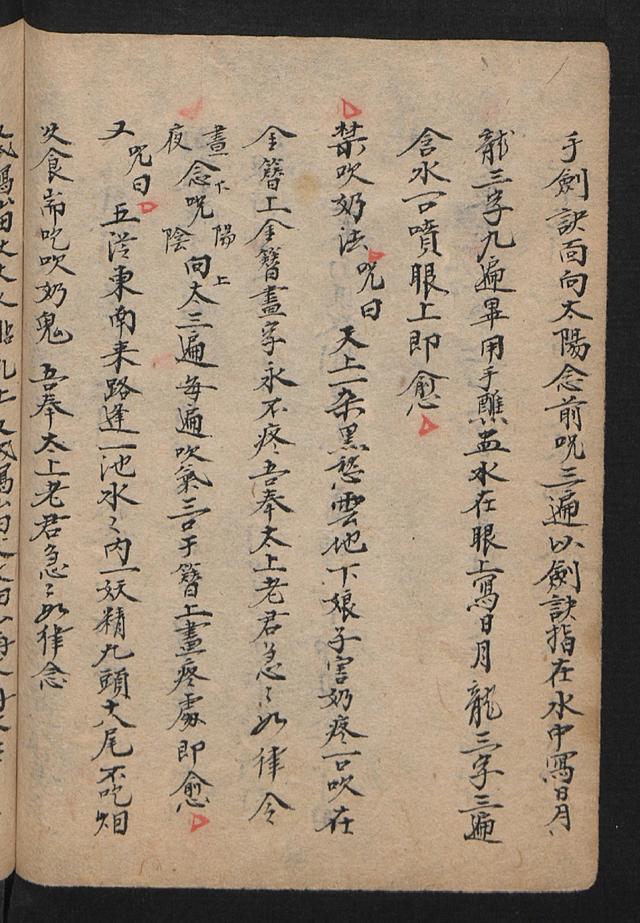 手劍訣面向太陽念前咒三遍以劍訣指在水中寫日月
龍三字九遍畢用手蘸盂水在眼上寫日月龍三字三遍
含水一口噴眼上即愈
禁吹奶法 咒曰 天上一朵黑愁雲地下娘子害奶疼一口吹在
金簪上金簪畫字永不疼吾奉太上老君急〻如律令
晝夜念咒下上陽陰向太三遍每遍吹氣三口于簪上畫疼處即愈
又咒曰 五從東南來路逢一池水〻內一妖精九頭十八尾不吃烟
火食耑吃吹奶鬼 吾奉太上老君急〻如律念